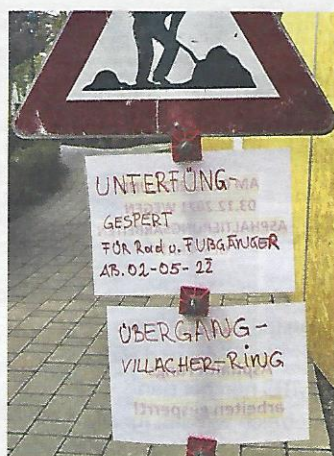 UNTERFÜNG-
GESPERT
FÜR Rad u. FUßGÄNGER
AB. 02-05-22
ÜBERGANG-
VILLACHER-RING